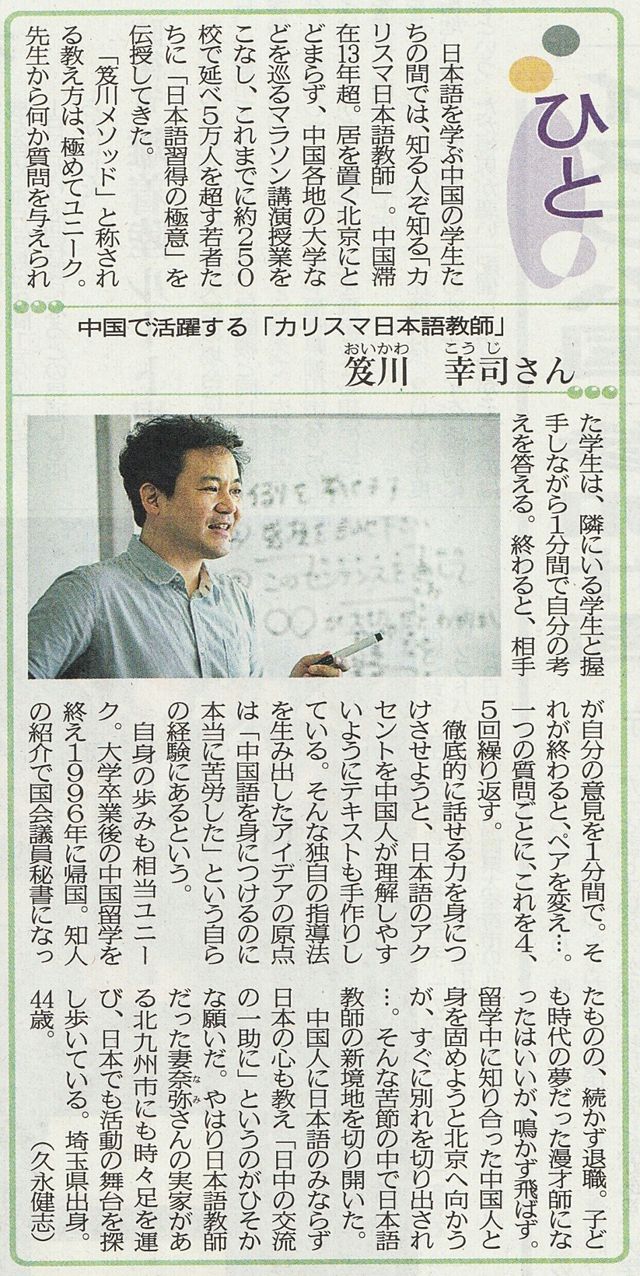 ひと
日本語を学ぶ中国の学生た
ちの間では、知る人ぞ知る「カ
リスマ日本語教師」。中国滞
在13年超。居を置く北京にと
どまらず、中国各地の大学な
どを巡るマラソン講演授業を
こなし、これまでに約250
校で延べ5万人を超す若者た
ちに「日本語習得の極意」を
伝授してきた。
「笈川メソッド」と称され
る教え方は、極めてユニーク。
先生から何か質問を与えられ
中国で活躍する「カリスマ日本語教師」
おいかわ こうじ
笈川 幸司さん
た学生は、隣にいる学生と握
手しながら1分間で自分の考
えを答える。終わると、相手
が自分の意見を1分間で。そ
れが終わると、ペアを変え…。
一つの質問ごとに、これを4、
5回繰り返す。
徹底的に話せる力を身につ
けさせようと、日本語のアク
セントを中国人が理解しやす
いようにテキストも手作りし
ている。そんな独自の指導法
を生み出したアイデアの原点
は「中国語を身につけるのに
本当に苦労した」という自ら
の経験にあるという。
自身の歩みも相当ユニー
ク。大学卒業後の中国留学を
終え1996年に帰国。知人
の紹介で国会議員秘書になっ
たものの、続かず退職。子ど
も時代の夢だった漫才師にな
ったはいいが、鳴かず飛ばず。
留学中に知り合った中国人と
身を固めようと北京へ向かう
が、すぐに別れを切り出され
…。そんな苦節の中で日本語
教師の新境地を切り開いた。
中国人に日本語のみならず
日本の心も教え「日中の交流
の一助に」というのがひそか
な願いだ。やはり日本語教師
だった妻奈弥さんの実家があ
なみ
る北九州市にも時々足を運
び、日本でも活動の舞台を探
し歩いている。埼玉県出身。
44歳。
（久永健志）